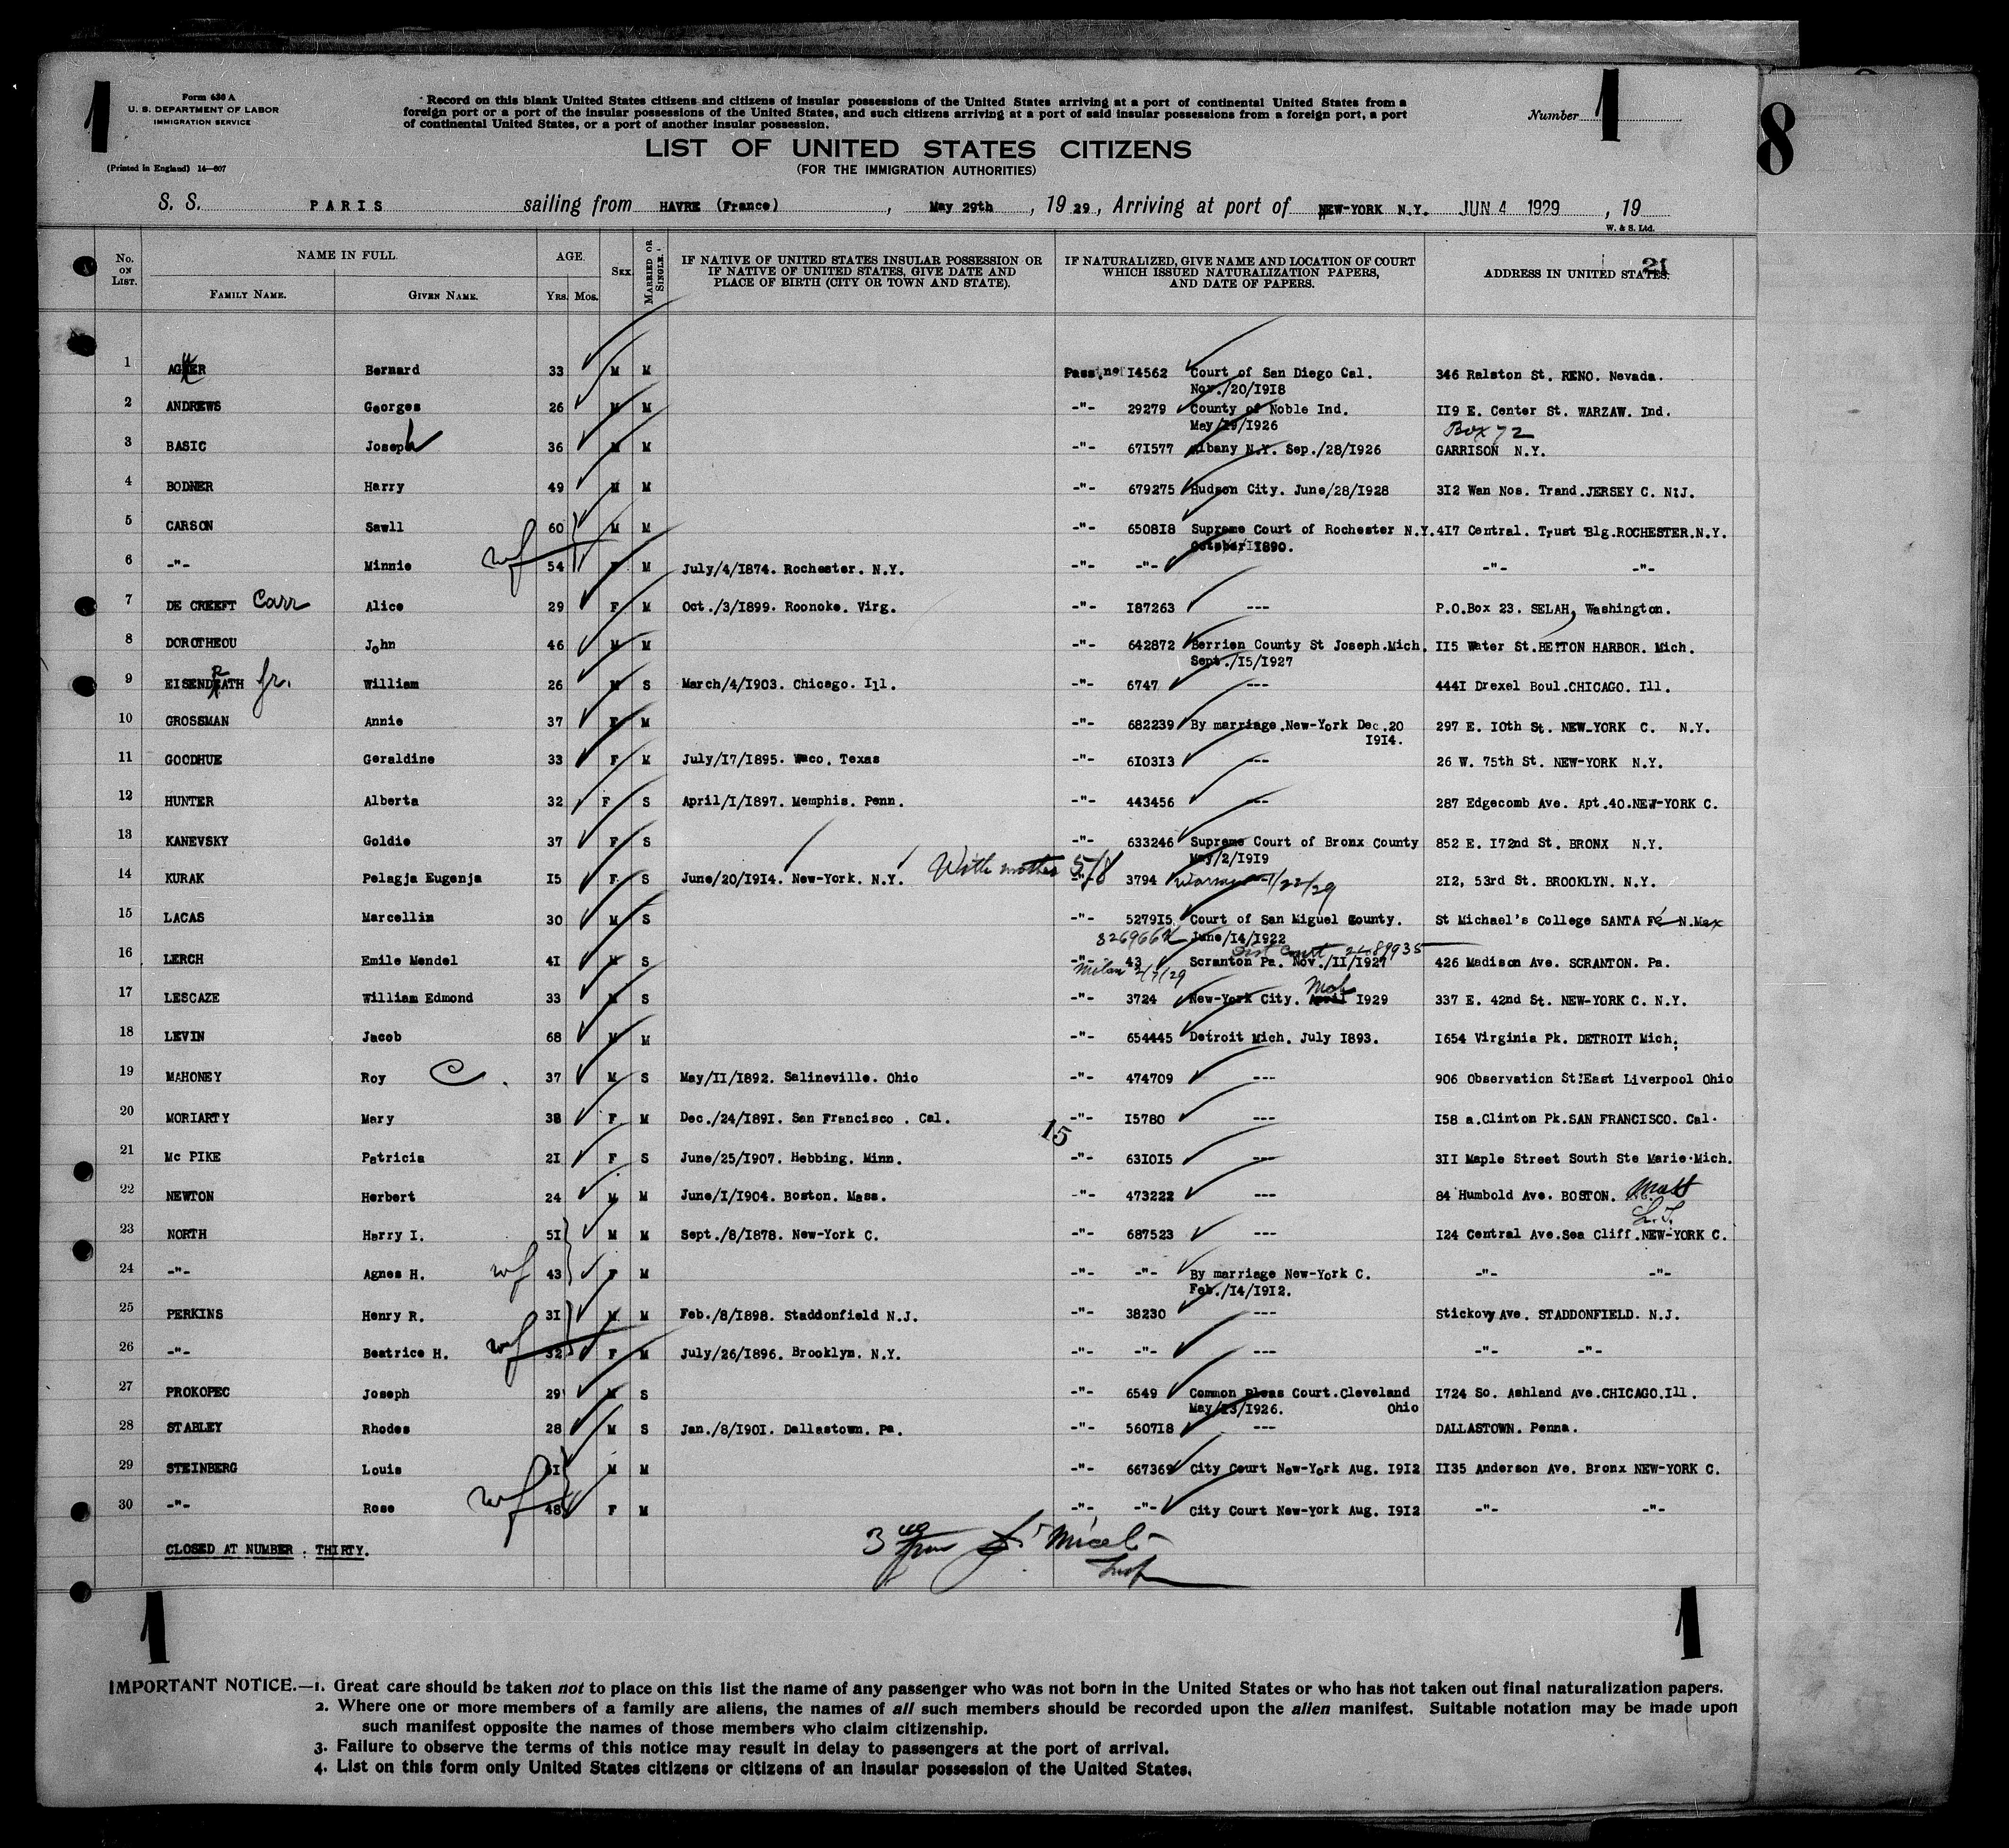 1
Form 630 A
U. S. DEPARTMENT OF LABOR
IMMIGRATION SERVICE
(Printed in England) 14—607
Record on this blank United States citizens and citizens of insular possessions of the United States arriving at a port of continental United States from a
foreign port or a port of the insular possessions of the United States, and such citizens arriving at a port of said insular possessions from a foreign port, a port
of continental United States, or a port of another insular possession.
Number 1
8
LIST OF UNITED STATES CITIZENS
(FOR THE IMMIGRATION AUTHORITIES)
S. S. PARIS sailing from HAVRE (France), May 29th, 19 29, Arriving at port of NEW-YORK N.Y. JUN 4 1929, 19
W. & S. Ltd.
No. ON LIST. NAME IN FULL. FAMILY NAME. GIVEN NAME. AGE. YRS. MOS. SEX MARRIED OR SINGLE. IF NATIVE OF UNITED STATES INSULAR POSSESSION OR IF NATIVE OF UNITED STATES, GIVE DATE AND PLACE OF BIRTH (CITY OR TOWN AND STATE). IF NATURALIZED, GIVE NAME AND LOCATION OF COURT WHICH ISSUED NATURALIZATION PAPERS, AND DATE OF PAPERS. ADDRESS IN UNITED STATES. 21
1 Bernard 33 M M Pass.no I4562 Court of San Diego Cal. 346 Ralston St. RENO. Nevada.
Nov./20/I9I8
2 ANDREWS Georges 26 M M -"- 29279 County of Noble Ind. II9 E. Center St. WARZAW. Ind.
May/I9/I926
Box 72
3 BASIC Joseph 36 M M -"- 67I577 Albany N.Y. Sep./28/I926 GARRISON N.Y.
4 BODNER Harry 49 M M -"- 679275 Hudson City. June/28/I928 3I2 Wan Nos. Trand.JERSEY C. N:J.
5 CARSON Sawll 60 M M -"- 6508I8 Supreme Court of Rochester N.Y. 4I7 Central. Trust Blg.ROCHESTER.N.Y.
October I890.
6 -"- Minnie wf 54 F M July/4/I874. Rochester. N.Y. -"- -"- -"- -"-
7 DE CREEFT Carr Alice 29 F M Oct./3/I899. Roonoke. Virg. -"- I87263 --- P.O.Box 23. SELAH, Washington.
8 DOROTHEOU John 46 M M -"- 642872 Berrien County St Joseph.Mich. II5 Water St.BETTON HARBOR. Mich.
Sept./I5/I927
9 EISENDRATH Jr. William 26 M S March/4/I903. Chicago. Ill. -"- 6747 --- 444I Drexel Boul.CHICAGO. Ill.
10 GROSSMAN Annie 37 F M -"- 682239 By marriage.New-York Dec.20 297 E. IOth St. NEW-YORK C. N.Y.
I9I4.
11 GOODHUE Geraldine 33 F M July/I7/I895. Waco. Texas -"- 6I03I3 --- 26 W. 75th St. NEW-YORK N.Y.
12 HUNTER Alberta 32 F S April/I/I897. Memphis. Penn. -"- 443456 --- 287 Edgecomb Ave. Apt.40.NEW-YORK C.
13 KANEVSKY Goldie 37 F S -"- 633246 Supreme Court of Bronx County 852 E. I72nd St. BRONX N.Y.
May/2/I9I9
14 KURAK Pelagja Eugenja I5 F S June/20/I9I4. New-York. N.Y. With mother 5/8 -"- 3794 Warsaw 1/22/29 2I2, 53rd St. BROOKLYN. N.Y.
15 LACAS Marcellin 30 M S -"- 5279I5 Court of San Miguel County. St Michael's College SANTA Fé N.Mex
June/I4/I922
Dist Court 2489935
16 LERCH Emile Mendel 4I M S -"- 43 Scranton Pa. Nov./II/I927 426 Madison Ave. SCRANTON. Pa.
Milan 2/7/29
17 LESCAZE William Edmond 33 M S -"- 3724 New-York City. April I929 337 E. 42nd St. NEW-YORK C. N.Y.
18 LEVIN Jacob 68 M M -"- 654445 Detroit Mich. July I893. I654 Virginia Pk. DETROIT Mich.
19 MAHONEY Roy C. 37 M S May/II/I892. Salineville. Ohio -"- 474709 --- 906 Observation St:East Liverpool Ohio
20 MORIARTY Mary 38 F M Dec./24/I89I. San Francisco . Cal. -"- I5780 --- I58 a.Clinton Pk.SAN FRANCISCO. Cal.
15
21 Mc PIKE Patricia 2I F S June/25/I907. Hebbing. Minn. -"- 63I0I5 --- 3II Maple Street South Ste Marie.Mich.
22 NEWTON Herbert 24 M M June/I/I904. Boston. Mass. -"- 473222 --- 84 Humbold Ave. BOSTON. Mass
L.I.
23 NORTH Harry I. 5I M M Sept./8/I878. New-York C. -"- 687523 --- I24 Central Ave.Sea Cliff.NEW-YORK C.
24 -"- Agnes H. wf 43 F M -"- -"- By marriage New-York C. -"- -"-
Feb./I4/I9I2.
25 PERKINS Henry R. 3I M M Feb./8/I898. Staddonfield N.J. -"- 38230 --- Stickovy Ave. STADDONFIELD. N.J.
26 -"- Beatrice H. wf 32 F M July/26/I896. Brooklyn. N.Y. -"- -"- --- -"- -"-
27 PROKOPEC Joseph 29 M S -"- 6549 Common Pleas Court.Cleveland I724 So. Ashland Ave.CHICAGO.Ill.
May/I3/I926. Ohio
28 STABLEY Rhodes 28 M S Jan./8/I90I. Dallastown. Pa. -"- 5607I8 --- DALLASTOWN. Penna.
29 STEINBERG Louis M M -"- 667369 City Court New-York Aug. I9I2 II35 Anderson Ave. Bronx NEW-YORK C.
30 -"- Rose wf 48 F M -"- -"- City Court New-York Aug. I9I2 -"- -"-
CLOSED AT NUMBER : THIRTY.
1 1
IMPORTANT NOTICE.—1. Great care should be taken not to place on this list the name of any passenger who was not born in the United States or who has not taken out final naturalization papers.
2. Where one or more members of a family are aliens, the names of all such members should be recorded upon the alien manifest. Suitable notation may be made upon
such manifest opposite the names of those members who claim citizenship.
3. Failure to observe the terms of this notice may result in delay to passengers at the port of arrival.
4. List on this form only United States citizens or citizens of an insular possession of the United States.